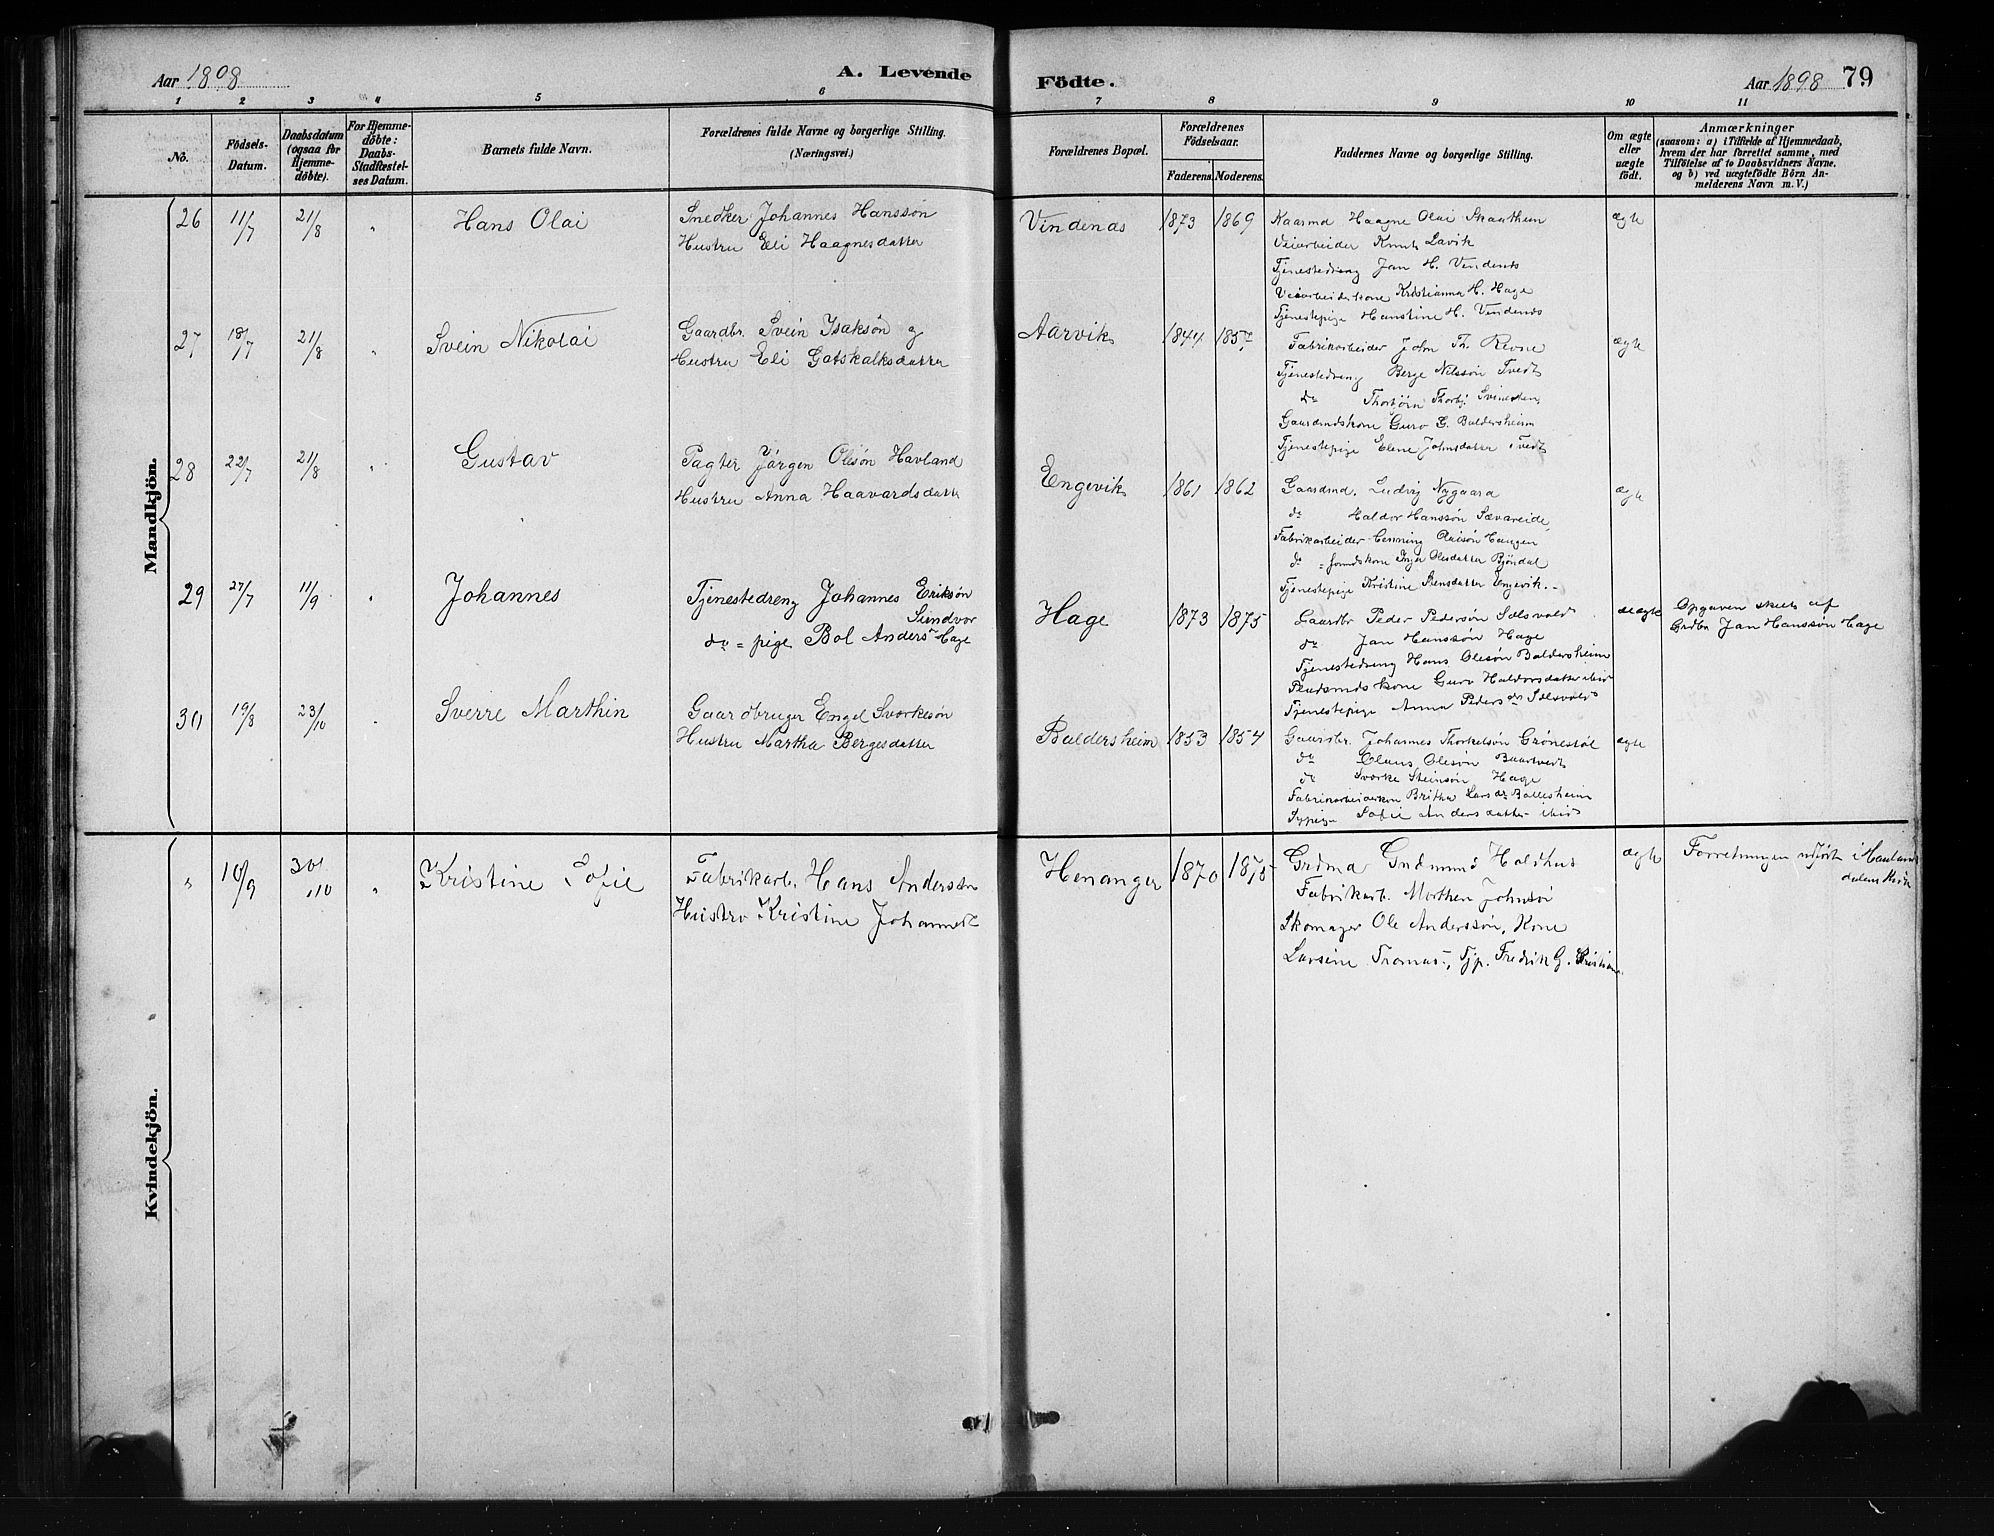 Aar 1898
A. Levende
Födte.
Aar 1898
79
1 2 3 4 5 6 7 8 9 10 11
No.
Födsels-
Datum.
Daabsdatum
(ogsaa for
Hjemme-
döbte).
For Hjemme-
döbte:
Daabs-
Stadfæstel-
ses Datum.
Barnets fulde Navn.
Forældrenes fulde Navne og borgerlige Stilling.
(Næringsvei.)
Forældrenes Bopæl.
Forældrenes
Födselsaar.
Faderens. Moderens.
Faddernes Navne og borgerlige Stilling.
Om ægte
eller
uægte
födt.
Anmærkninger
(saasom: a) i Tilfælde af Hjemmedaab,
hvem der har forrettet samme, med
Tilföielse af to Daabsvidners Navne,
og b) ved uægtefödte Börn An-
melderens Navn m. V.)
Mandkjön.
26 11/7 21/8 " Hans Olai
Snedker Johannes Hanssøn
Hustru Eli Haagnesdatter
Vindenes 1873 1869
Kaarmd Haagne Olai Skaatheim
Veiarbeider Knut Lavik
Tjenestedreng Jan H. Vindenes
Veiarbeiderkone Kristianna H. Hage
Tjenestepige Hanstine H. Vindenes
ægte
27 18/7 21/8 " Svein Nikolai
Gaardbr. Svein Isaksøn og
Hustru Eli Gotskalksdatter
Aarvik 1844
Fabrikarbeider John Th. Revne
Tjenestedreng Berge Nilssøn Tvedt
do Thorbjørn Thorbj. Svinesten
Gaardmdskone Guro G. Baldersheim
Tjenestepige Elene Johnsdatter Tvedt
ægte
28 22/7 21/8 " Gustav
Pagter Jørgen Olesøn Havland
Hustru Anna Haavardsdatter
Engevik 1861 1862
Gaardmd. Ludvig Nygaard
do Haldor Hanssøn Sævareide
Fabrikarbeider Henning Olaisøn Haugen
do = formdskone Inga Olesdatter Bjöndal
Tjenestepige Kristine Stensdatter Engevik
ægte
29 27/7 11/9 " Johannes
Tjenestedreng Johannes Eriksøn
Sundvor
do = pige Bol Andersd. Hage
Hage 1873 1875
Gaardbr Peder Pedersøn Sælsvold
do Jan Hanssøn Hage
Tjenestedreng Hans Olesøn Baldersheim
Guro Haldorsdatter ibid
Tjenestepige Anna Pedersdr Sælsvold
uægte
Opgaven skeet af
Grdbr Jan Hanssøn Hage
30 19/8 23/10 " Sverre Marthin
Gaardbruger Engel Sværkesøn
Hustru Martha Bergesdatter
Baldersheim 1853 1854
Gaardbr. Johannes Thorkelsøn Grönestöl
do Olaus Olesøn Baartvedt
do Sværke Steinsøn Hage
Fabrikarbeiderkon Britha Larsdr Ballesheim
Sypige Sofie Andersdatter ibid
ægte
Kvindekjön.
" 10/9 30/10 " Kristine Sofie
Fabrikarb. Hans Andersen
Hustru Kristine Johannesd.
Henanger 1870
Grdmd Gudmund Haldhus
Fabrikarb. Morthen Johnsø
Skomager Ole Anderssøn, Kone
Larsine Tromas-, Tjp. Fredrik G. Kristiane
ægte
Forretningen udført i Hauland
dalens Kirke